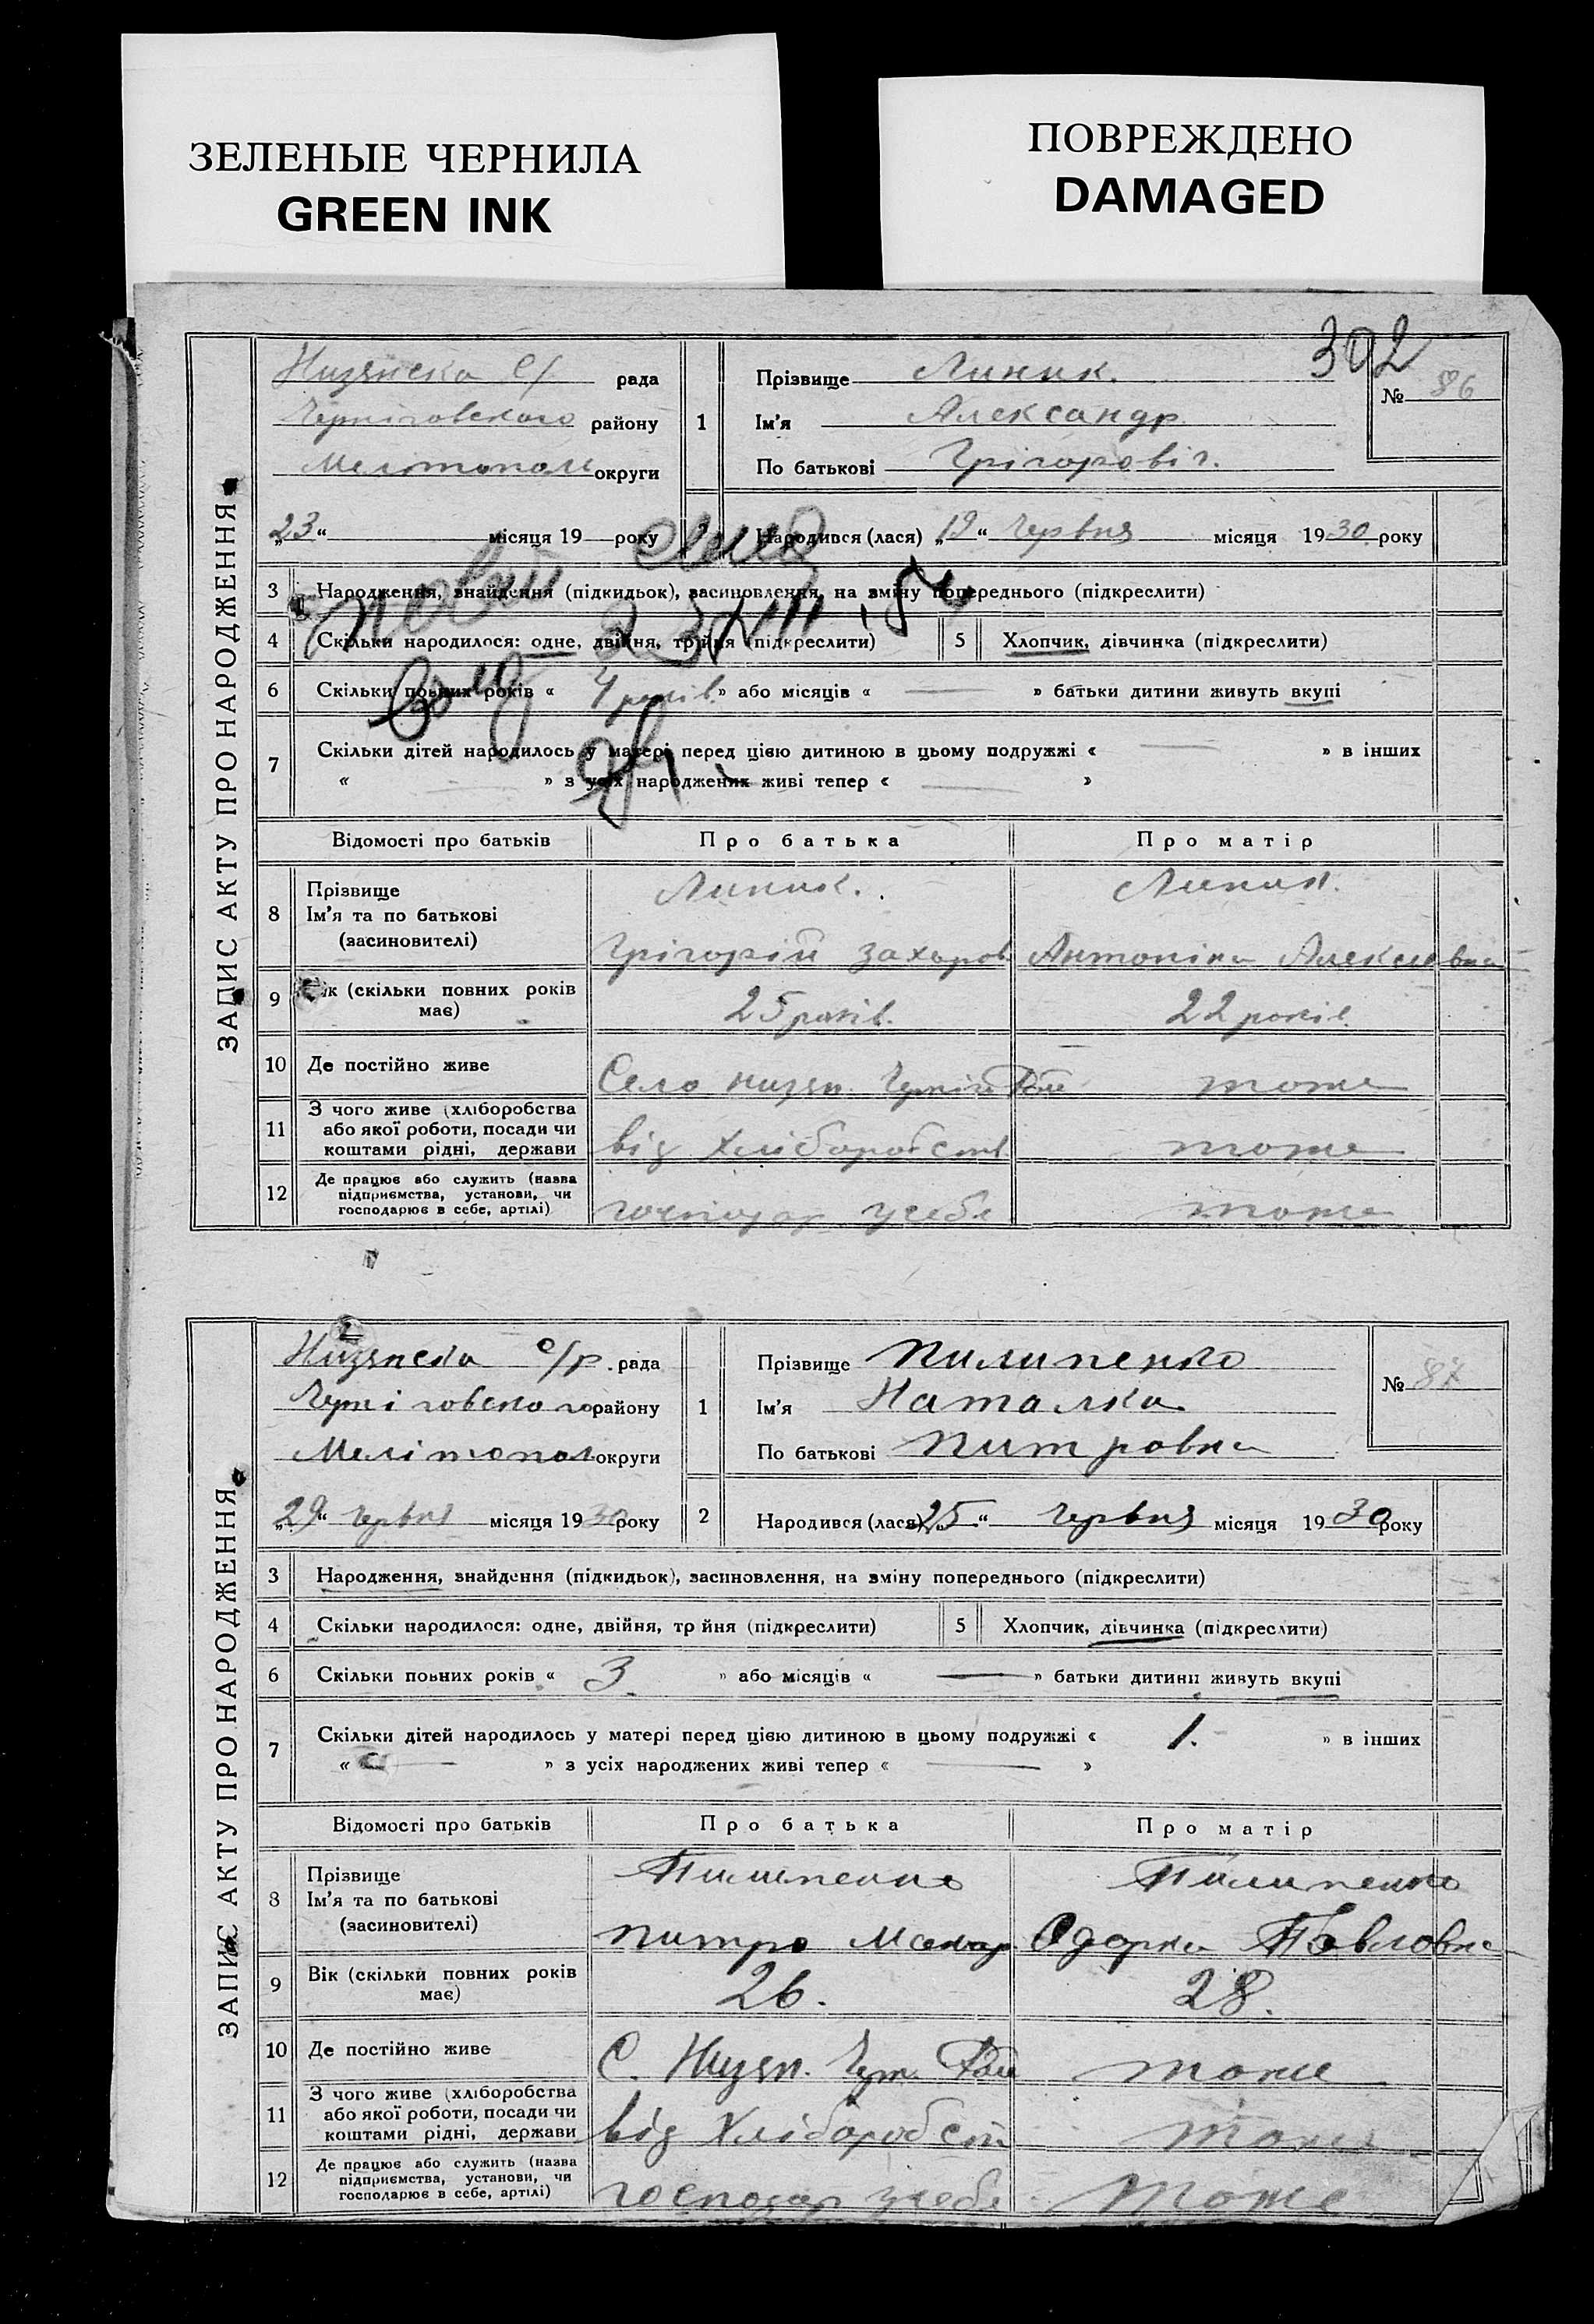 ЗЕЛЕНЫЕ ЧЕРНИЛА
GREEN INK
ПОВРЕЖДЕНО
DAMAGED
302
ЗАПИС АКТУ ПРО НАРОДЖЕННЯ
Низянска с/ рада
Чернiговского району
Мелiтополь округи
1 Прізвище Линник.
Ім'я Александр
По батькові Грiгоровiч.
№ 86
„23“ місяця 19 року
2 Народився (лася) „19“ Червня місяця 1930 року
3 Народження, знайдення (підкидьок), засиновлення, на зміну попереднього (підкреслити)
4 Скільки народилося: одне, двійня, трійня (підкреслити)
5 Хлопчик, дівчинка (підкреслити)
6 Скільки повних років « 4 років » або місяців « — » батьки дитини живуть вкупі
7 Скільки дітей народилось у матері перед цією дитиною в цьому подружжі « — » в інших
« — » з усіх народжених живі тепер « — »
Відомості про батьків Про батька Про матір
8 Прізвище
Ім'я та по батькові
(засиновителі)
Линик. Линик.
Грiгорiй Захаров Антонiна Алексеевна
9 Вік (скільки повних років має) 25 років. 22 років.
10 Де постійно живе Село Низян. Чернiг Рай тоже
11 З чого живе (хліборобства або якої роботи, посади чи коштами рідні, держави від Хліборобств тоже
12 Де працює або служить (назва підприємства, установи, чи господарює в себе, артілі) господар усебе тоже
ЗАПИС АКТУ ПРО НАРОДЖЕННЯ
Низянска с/р. рада
Чернiговского району
Мелiтопол округи
1 Прізвище Пилипенко
Ім'я Наталка
По батькові Питровна
№ 87
„29“ Червня місяця 1930 року
2 Народився (лася) „25“ Червня місяця 1930 року
3 Народження, знайдення (підкидьок), засиновлення, на зміну попереднього (підкреслити)
4 Скільки народилося: одне, двійня, трійня (підкреслити)
5 Хлопчик, дівчинка (підкреслити)
6 Скільки повних років « 3 » або місяців « — » батьки дитини живуть вкупі
7 Скільки дітей народилось у матері перед цією дитиною в цьому подружжі « 1. » в інших
« — » з усіх народжених живі тепер « — »
Відомості про батьків Про батька Про матір
8 Прізвище
Ім'я та по батькові
(засиновителі)
Пилипенко Пилипенко
Питро Макар. Одарка Павловна
9 Вік (скільки повних років має) 26. 28.
10 Де постійно живе С. Низян. Черн. Рай тоже
11 З чого живе (хліборобства або якої роботи, посади чи коштами рідні, держави від Хліборобств тоже
12 Де працює або служить (назва підприємства, установи, чи господарює в себе, артілі) господар усебе тоже